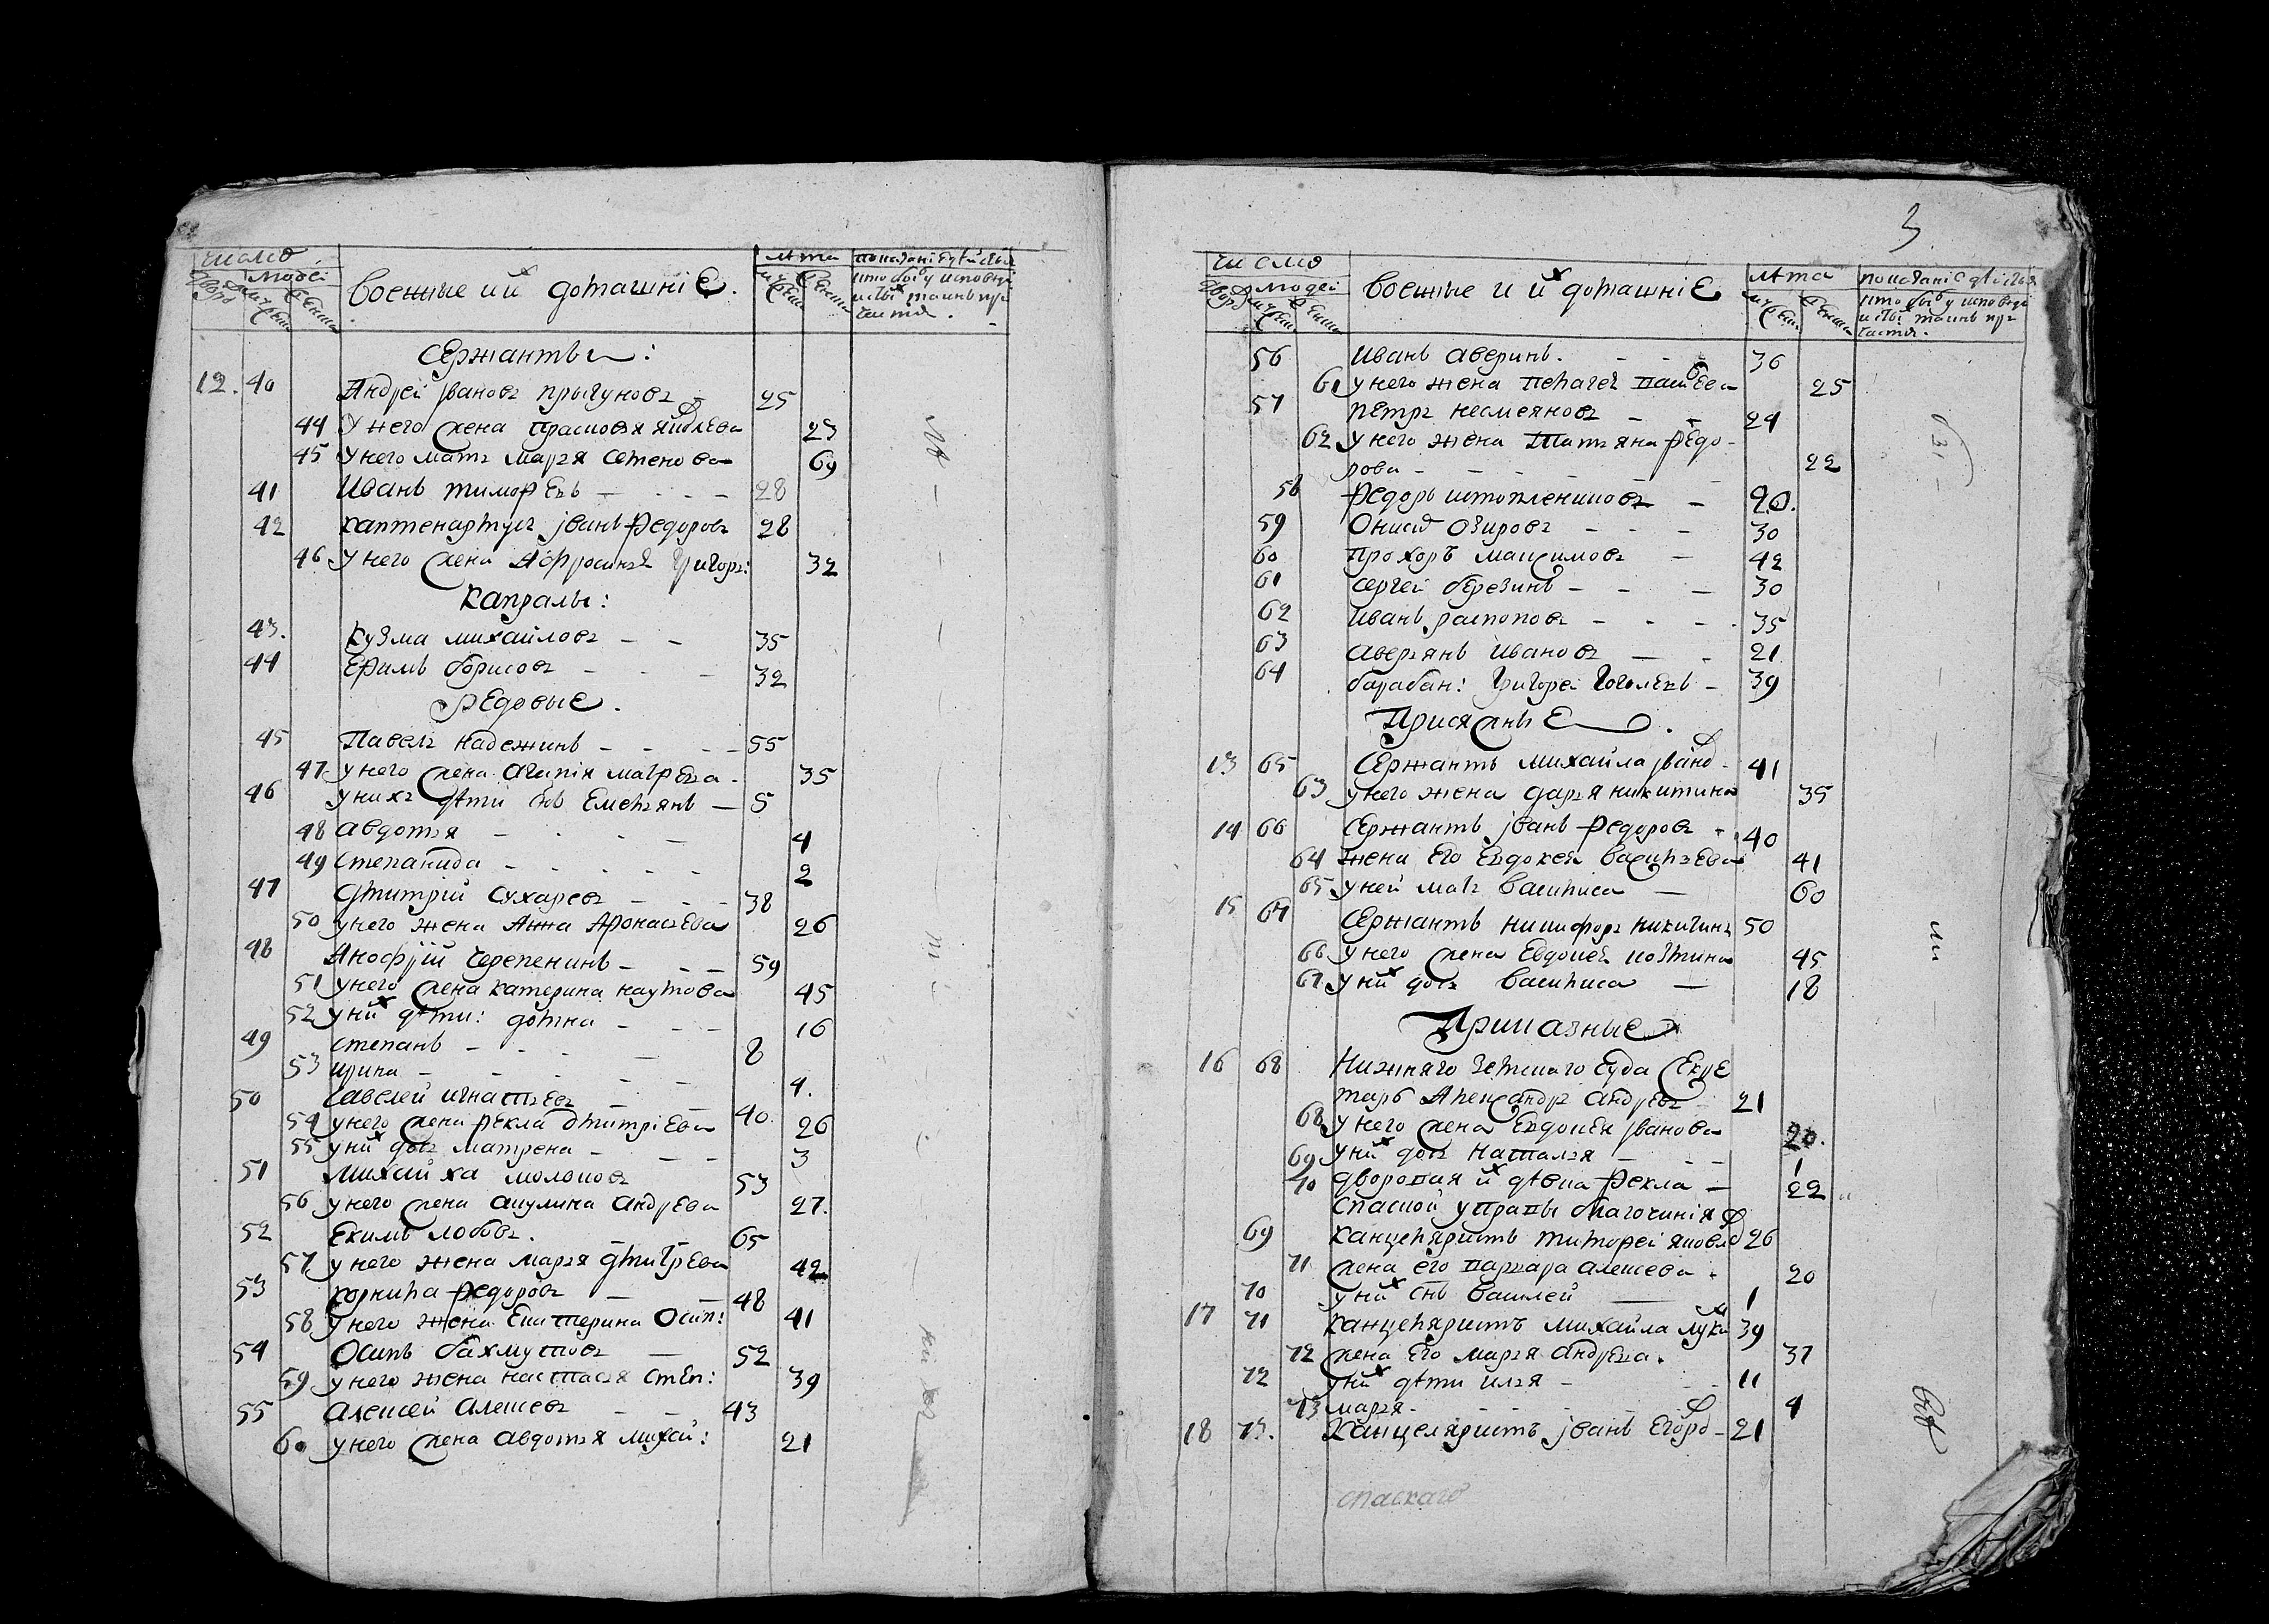 число
людей
военные и их домашние.
лета
Сержанты:
12. 40 Андрей Iванов Прыгунов 25
44 У него жена Прасковья Яковлева 23
45 У него мать Марья Семенова 69
41 Иванъ Тимофеев 28
42 каптенармус Iванъ Федоров 28
46 У него жена Афросинья Григорь: 32
капралы:
43. Кузма Михайлов 35
44 Ефимъ Борисов 32
Редовые.
45 Павел Надежинъ 55
47 у него жена 35
46 у них дети снъ Емельянъ 5
48 Авдотья 4
49 Степанида 2
47 Дмитрий Сухарев 38
50 у него жена Анна Афонасьева 26
48 Анофрий Черепенинъ 59
51 у него жена Катерина Наумова 45
52 у них дети: Домна 16
49 Степанъ 8
53 Ирина 4.
50 Савелей Игнатьев 40.
54 у него жена Фекла Дмитрiева 26
55 у них дочь Матрена 3
51 Михайла 53
56 у него жена Акулина Андреева 27.
52 Екимъ Лобов. 65
57 у него жена Марья Дмитрева 42
53 Корнила Федоров 48
58 у него жена Екатерина Осип: 41
54 Осипъ Бахмутов 52
59 у него жена Настасья Степ: 39
55 Алексей Алексев 43
60 у него жена Авдотья Михай: 21
3
число
людей
военные и их домашние
лета
56 Иванъ Аверинъ. 36
61 у него жена Пелагея 25
57 Петр Несмеянов 24
62 у него жена Татьяна Федо-
рова 22
58 Федоръ 20.
59 30
60 Прохоръ Максимов 42
61 Сергей Березинъ 30
62 Иванъ Распопов 35
63 Аверьянъ Иванов 21
64 барабан: Григорей Гоголевъ 39
Присяжные.
13 65 Сержантъ Михайла Iвано 41
63 у него жена Дарья Никитина 35
14 66 Сержантъ Iванъ Федоров 40
64 жена его Евдокея Васильева 41
65 у ней мать Василиса 60
15 67 Сержантъ Никифор Никитинъ 50
66 у него жена Евдокея Козмина 45
67 у них дочь Василиса 18
Приказные
16 68 Нижняго земскаго суда секре
тарь Александр Андреев 21
68 у него жена Евдокея Iванова 20.
69 у них дочь Наталья 1
70 дворовая их девка Фекла 22
Спаской управы благочинiя
69 канцеляристъ Тимофей Яковле 26
71 жена его Варвара Алексева 20
70 у них снъ Василей 1
17 71 канцеляристъ Михайла Лукин 39
72 жена его Марья Андрева. 37
72 у них дети Илья 11
73 Марья. 4
18 73. Канцеляристъ Iванъ Егоро 21
спаскаго